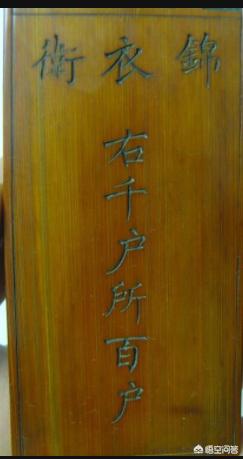 錦衣衛
右千户所百户
悟空问答